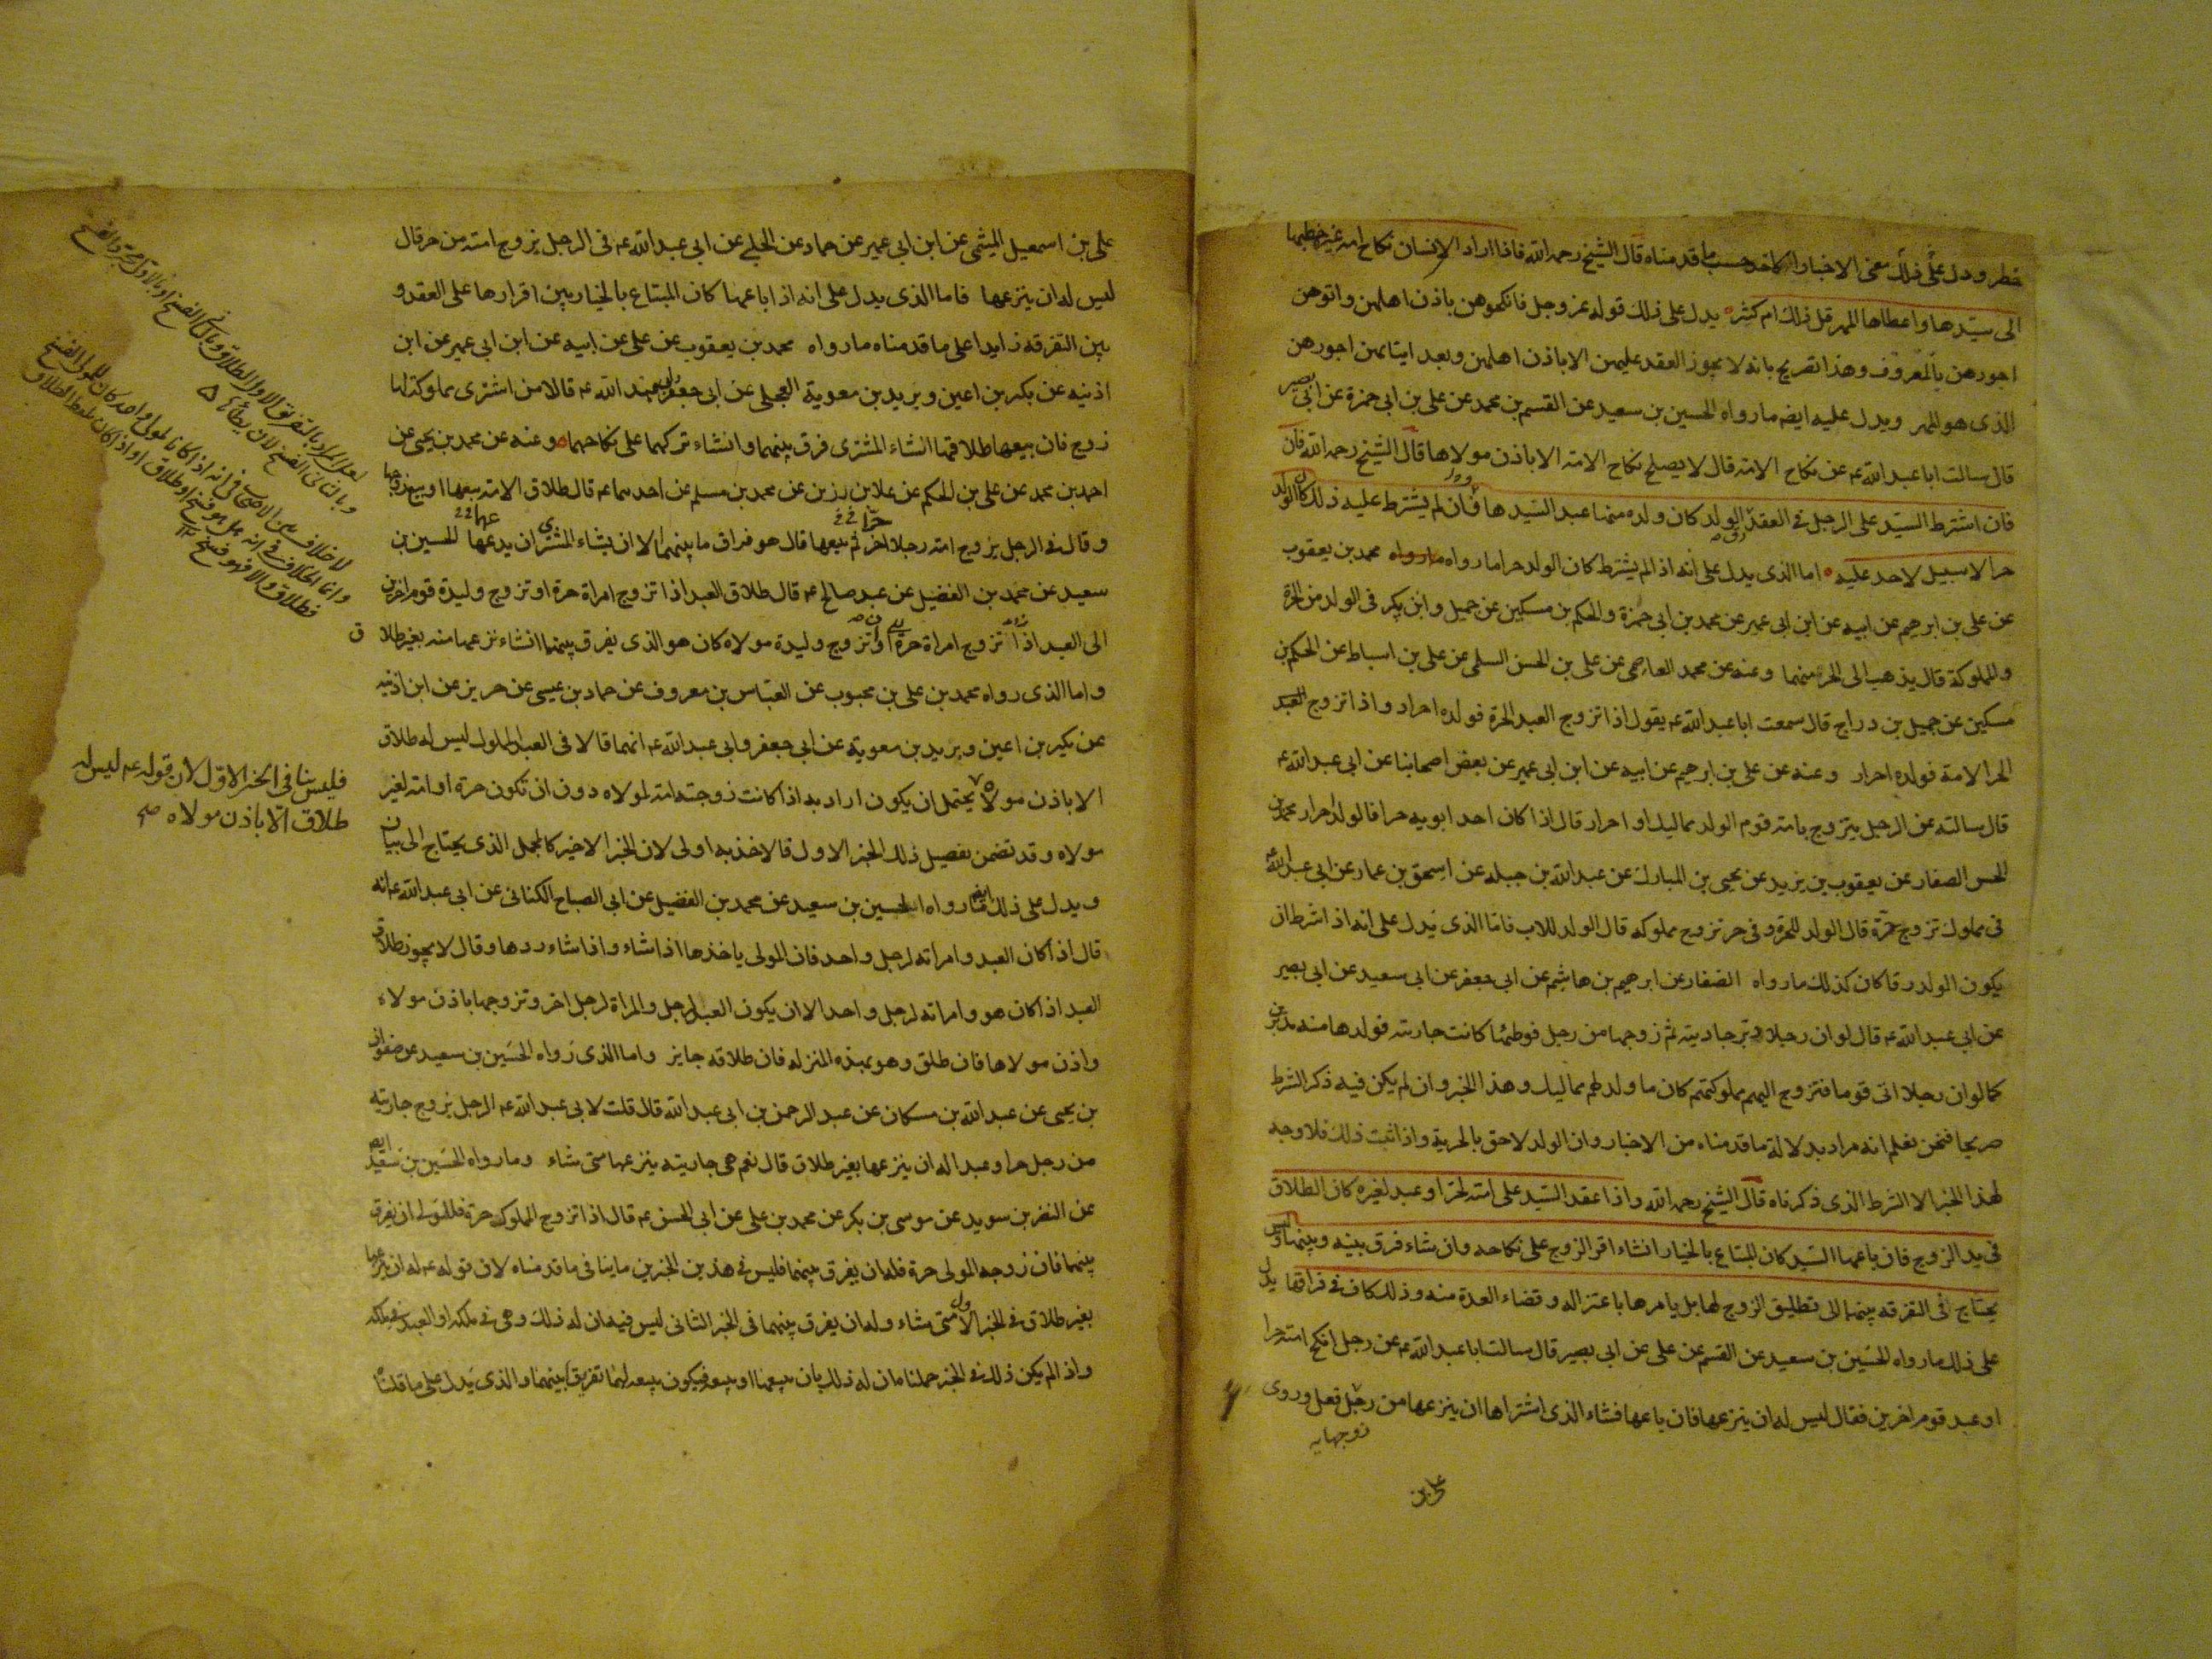 خطر ودل على ذلك معنى الاخبار حسب ما قدمناه قال الشيخ رحمه الله فاذا اراد الانسان نكاح امة غيره خطبها
الى سيدها واعطاها المهر قل ذلك ام كثر يدل على ذلك قوله عز وجل فانكحوهن باذن اهلهن واتوهن
اجورهن بالمعروف وهذا تصريح بانه لا يجوز العقد عليهن الا باذن اهلهن وبعد ايتائهن اجورهن
الذى هو المهر ويدل عليه ايضا ما رواه الحسين بن سعيد عن القسم بن محمد عن على بن ابى حمزة عن ابى بصير
قال سالت ابا عبد الله عم عن نكاح الامة قال لا يصلح نكاح الامة الا باذن مولاها قال الشيخ رحمه الله فان
فان اشترط السيد على الرجل فى العقد الولد كان ولده منها عبد السيدها فان لم يشترط عليه ذلك كان الولد
حرا لا سبيل لاحد عليه اما الذى يدل على انه اذا لم يشترط كان الولد حرا ما رواه محمد بن يعقوب
عن على بن ابرهيم عن ابيه عن ابن ابى عمير عن محمد بن ابى حمزة والحكم بن مسكين عن جميل وابن بكير فى الولد من الحر
والمملوكة قال يذهب الى الحر منهما وعنه عن محمد العاصمى عن على بن الحسن السلمى عن على بن اسباط عن الحكم بن
مسكين عن جميل بن دراج قال سمعت ابا عبد الله عم يقول اذا تزوج العبد الحرة فولده احرار واذا تزوج العبد
الحر الامة فولده احرار وعنه عن على بن ابرهيم عن ابيه عن ابن ابى عمير عن بعض اصحابنا عن ابى عبد الله عم
قال سالته عن الرجل يتزوج بامة قوم الولد مماليك او احرار قال اذا كان احد ابويه حرا فالولد احرار محمد بن
الحسن الصفار عن يعقوب بن يزيد عن يحيى بن المبارك عن عبد الله بن جبلة عن اسحق بن عمار عن ابى عبد الله عم
فى مملوك تزوج حرة قال الولد للحرة وفى حر تزوج مملوكة قال الولد للاب فاما الذى يدل على انه اذا اشرط ان
يكون الولد رقا كان كذلك ما رواه الصفار عن ابرهيم بن هاشم عن ابى جعفر عن ابى سعيد عن ابى بصير
عن ابى عبد الله عم قال لو ان رجلا دبر جارية ثم زوجها من رجل فوطئها كانت جاريته فولدها منه مدبرين
كما لو ان رجلا اتى قوما فتزوج اليهم مملوكتهم كان ما ولد لهم مماليك وهذا الخبر وان لم يكن فيه ذكر الشرط
صريحا فنحن نعلم انه مراد بدلالة ما قدمناه من الاخبار وان الولد لاحق بالحرية واذا ثبت ذلك فلا وجه
لهذا الخبر الا الشرط الذى ذكرناه قال الشيخ رحمه الله واذا عقد السيد على امته لحر او عبد لغيره كان الطلاق
فى يد الزوج فان باعها السيد كان المبتاع بالخيار ان شاء اقر الزوج على نكاحه وان شاء فرق بينه وبينها وليس
يحتاج فى التفرقة بينهما الى تطليق الزوج لها بل يامرها باعتزاله وقضاء العدة منه وذلك كاف فى فراقها يدل
على ذلك ما رواه الحسين بن سعيد عن القسم عن على عن ابى بصير قال سالت ابا عبد الله عم عن رجل انكح امته حرا
او عبد قوم اخرين فقال ليس له ان ينزعها فان باعها فشاء الذى اشتراها ان ينزعها من زوجها فعل وروى
على بن
على بن اسمعيل الميثمى عن ابن ابى عمير عن حماد عن الحلبى عن ابى عبد الله عم فى الرجل يزوج امته من حر قال
ليس له ان ينزعها فاما الذى يدل على انه اذا باعها كان المبتاع بالخيار بين اقرارها على العقد و
بين التفرقة زايدا على ما قدمناه ما رواه محمد بن يعقوب عن على عن ابيه عن ابن ابى عمير عن ابن
اذنيه عن بكير بن اعين وبريد بن معوية العجلى عن ابى جعفر وابى عبد الله عم قالا من اشترى مملوكة لها
زوج فان بيعها طلاقها ان شاء المشترى فرق بينهما وان شاء تركهما على نكاحهما وعنه عن محمد بن يحيى عن
احمد بن محمد عن على بن الحكم عن علا بن رزين عن محمد بن مسلم عن احدهما عم قال طلاق الامة بيعها او بيع زوجها
وقال فى الرجل يزوج امته رجلا حرا ثم يبيعها قال هو فراق ما بينهما الا ان يشاء المشترى ان يدعهما الحسين بن
سعيد عن محمد بن الفضيل عن عبد صالح عم قال طلاق العبد اذا تزوج امراة حرة او تزوج وليدة قوم اخرين
الى العبد اذا تزوج امراة حرة او تزوج وليدة مولاه كان هو الذى يفرق بينهما ان شاء نزعها منه بغير طلا
ق
واما الذى رواه محمد بن على بن محبوب عن العباس بن معروف عن حماد بن عيسى عن حريز عن ابن اذنيه
عن بكير بن اعين وبريد بن معوية عن ابى جعفر وابى عبد الله عم انهما قالا فى العبد المملوك ليس له طلاق
الا باذن مولاه يحتمل ان يكون اراد به اذا كانت زوجته امة لمولاه دون ان تكون حرة او امة لغير
مولاه وقد تضمن تفصيل ذلك الخبر الاول فالاخذ به اولى لان الخبر الاخير كالمجمل الذى يحتاج الى بيان
ويدل على ذلك ايضا ما رواه الحسين بن سعيد عن محمد بن الفضيل عن ابى الصباح الكنانى عن ابى عبد الله عم انه
قال اذا كان العبد وامراته لرجل واحد فان المولى ياخذها اذا شاء واذا شاء ردها وقال لا يجوز طلاق
العبد اذا كان هو وامراته لرجل واحد الا ان يكون العبد لرجل والمراة لرجل اخر وتزوجها باذن مولاه
واذن مولاها فان طلق وهو بهذه المنزلة فان طلاقه جايز واما الذى رواه الحسين بن سعيد عن صفوان
بن يحيى عن عبد الله بن مسكان عن عبد الرحمن بن ابى عبد الله قال قلت لابى عبد الله عم الرجل يزوج جاريته
من رجل حر او عبد اله ان ينزعها بغير طلاق قال نعم هى جاريته ينزعها متى شاء وما رواه الحسين بن سعيد ايضا
عن النضر بن سويد عن موسى بن بكر عن محمد بن على عن ابى الحسن عم قال اذا تزوج المملوك حرة فللمولى ان يفرق
بينهما فان زوجه المولى حرة فله ان يفرق بينهما فليس فى هذين الخبرين ما ينافى ما قدمناه لان قوله عم له ان ينزعها
بغير طلاق فى الخبر الاول متى شاء وله ان يفرق بينهما فى الخبر الثانى ليس فيه ان له ذلك وهى فى ملكه او العبد فى ملكه
واذا لم يكن ذلك فى الخبر حملنا ان له ذلك بان يبيعها او يبيعه فيكون بيعه لهما تفريقا بينهما والذى يدل على ما قلناه
فليس ينافى الخبر الاول لان قوله عم ليس له
طلاق الا باذن مولاه صح